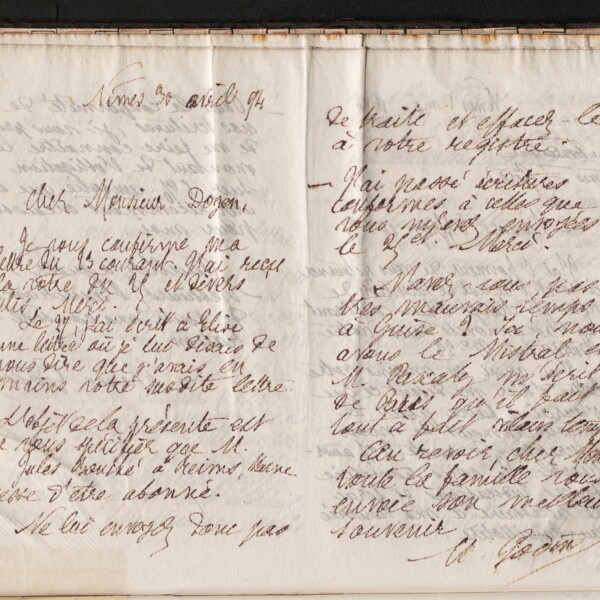 Nîmes 30 avril 94
Cher Monsieur Doyen,
Je vous confirme ma
lettre du 23 courant. J'ai reçu
la votre du 25 et divers
plis. Merci.
Le 27, j'ai écrit à Elise
une lettre où je lui disais de
vous dire que j'avais en
mains votre susdite lettre.
L'objet de la présente est
de vous spécifier que M.
Jules à Reims, Marne
cesse d'être abonné.
Ne lui envoyez donc pas
de traite et effacez-le
à votre registre.
— J'ai passé écritures
conformes à celles que
vous m'avez envoyées
le 25 ct. Merci.
N'avez-vous pas
très mauvais temps
à Guise ? Ici nous
avons le Mistral et
M. Pascaly m'écrit
de Paris qu'il fait
tout à fait vilain temps
Au revoir, cher Mon
toute la famille vous
envoie son meilleur
souvenir
Godin